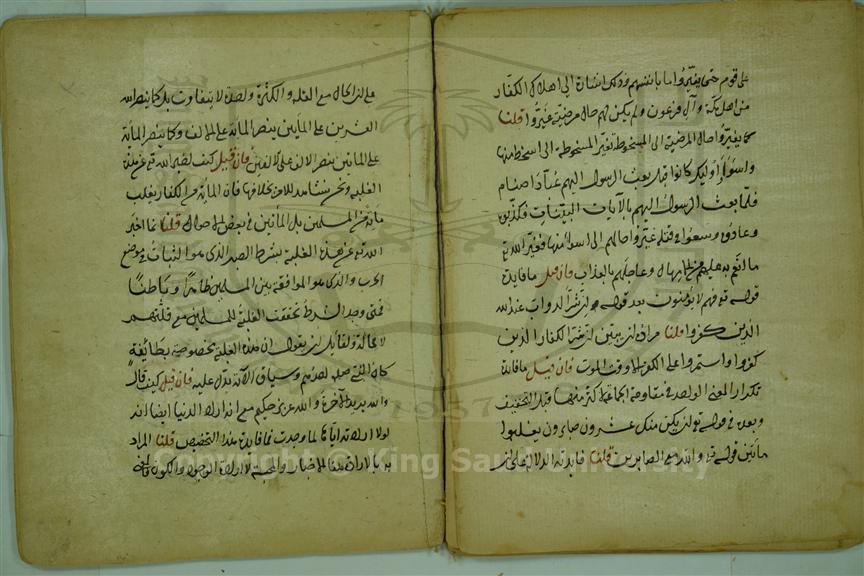 على قوم حتى يغيروا ما بانفسهم وذلك اشارة الى اهلاك الكفار
من اهل مكة وآل فرعون ولم يكن لهم حال مرضية غيروا قلنا
كما يغيروا حال المرضية الى المسخوطة تغير المسخوطة الى اسخط منها
واسوأ واوليك كانوا قبل بعث الرسول اليهم عباد اصنام
فلما بعث الرسول اليهم بالآيات البينات فكذبوه
وعادوه وسعوا في قتله غيروا حالهم الى اسوأ منها فغير الله تع
ما انعم به عليهم من الامهال وعاجلهم بالعذاب فان قيل ما فايدة
قوله تع فهم لا يؤمنون بعد قوله ان شر الدواب عند الله
الذين كفروا قلنا مراده ان يبين ان شر الكفار الذين
كفروا واستمروا على الكفر الى وقت الموت فان قيل ما فايدة
تكرار المعنى الواحد في مقاومة الجماعة اكثر منها قبل التخفيف
وبعده في قوله تع ان يكن منكم عشرون صابرون يغلبوا
مأتين قوله تع والله مع الصابرين قلنا فايدته الدلالة على ان
على ان الحال مع القلة والكثرة واحدة لا يتفاوت بل كما ينصر الله
العشرين على المأتين ينصر المائة على الالف وكما ينصر المأية
على المأتين ينصر الالف على الالفين فان قيل كيف اخبر الله تع عن هذه
الغلبة ونحن نشاهد الامر بخلافها فان المأية من الكفار يغلب
مأية من المسلمين بل المأتين في بعض الاحوال قلنا انما اخبر
الله تع عن هذه الغلبة بشرط الصبر الذي هو الثبات في موضع
الحرب والذي هو الموافقة بين المسلمين ظاهرا وباطنا
فمتى وجد الشرط تحققت الغلبة للمسلمين مع قلتهم
لا محالة ولقايل ان يقول ان هذه الغلبة مخصوصة بطائفة
كان النبي صلعم احدهم وسياق الآية يدل عليه فان قيل كيف قال
والله يريد الآخرة والله عزيز حكيم مع انه اراد الدنيا ايضا لانه
لولا ارادته اياها لما وجدت فما فايدة هذا التخصيص قلنا المراد
به بالارادة هنا الاختيار والمحبة لا ارادة الوجود والكون